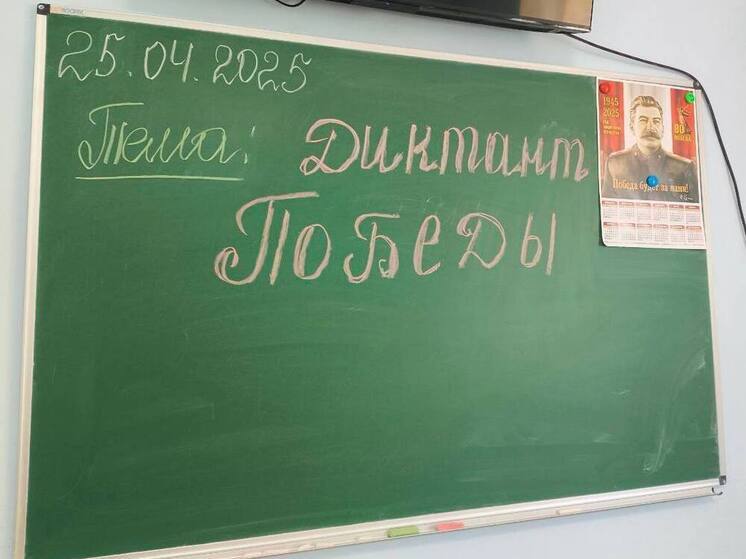 25.04.2025
Тема: Диктант
Победы
1945
2025
80
Победа будет за нами!